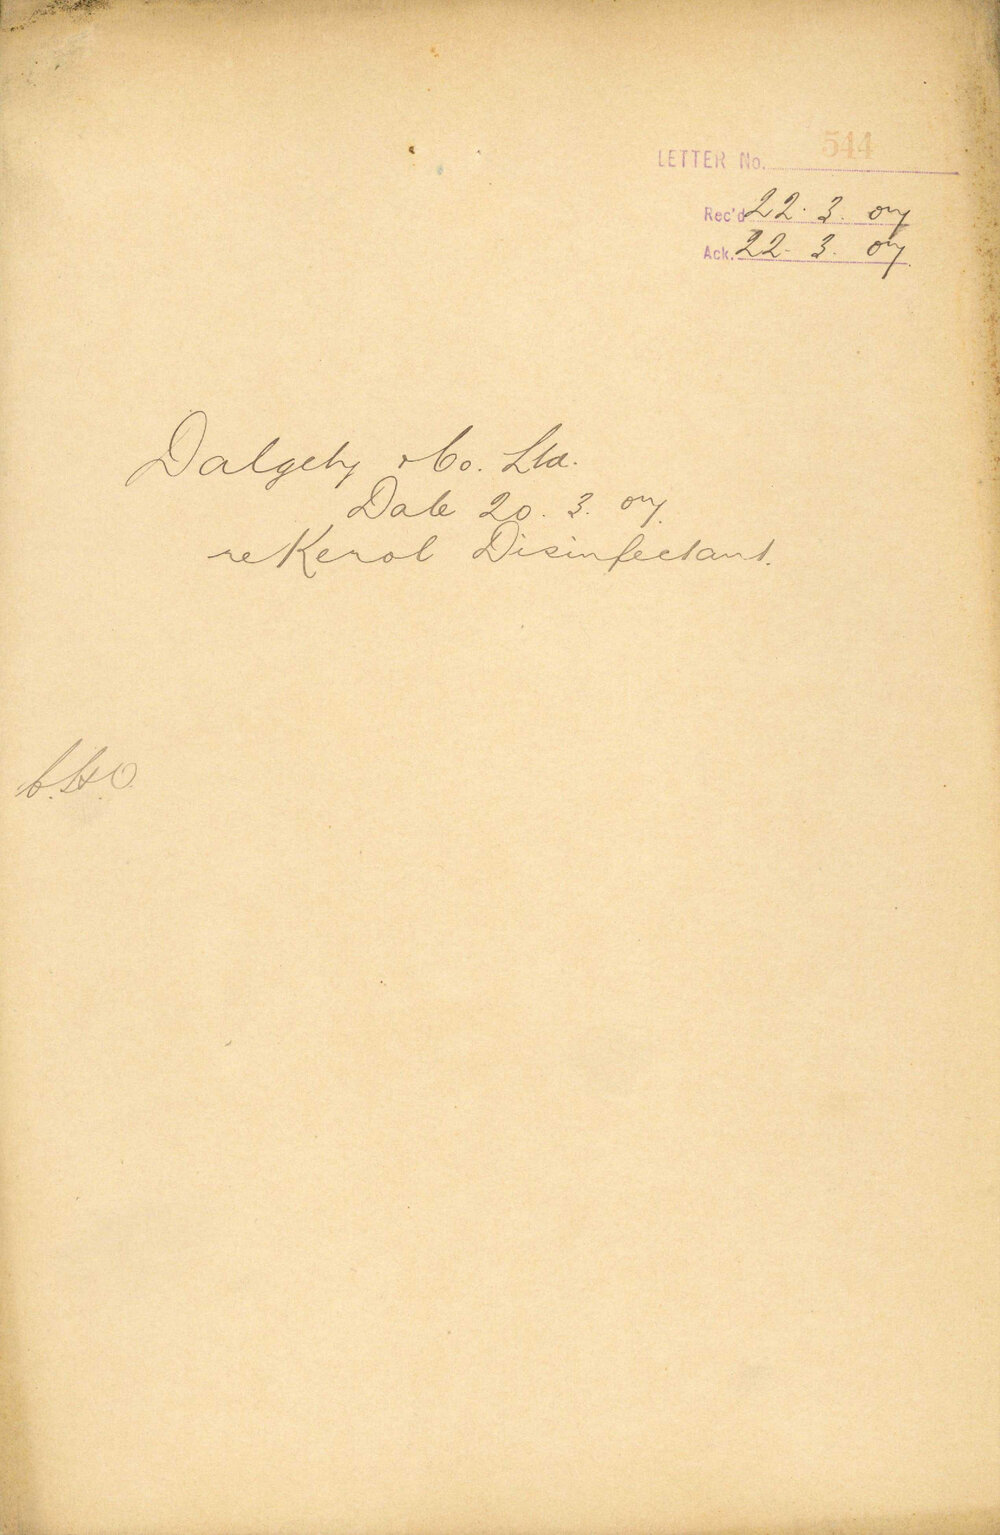 LETTER No. 544
Rec'd 22. 3. 07
Ack. 22. 3. 07.
Dalgety & Co. Ltd.
Date 20. 3. 07.
re Kerol Disinfectant.
C.H.O.